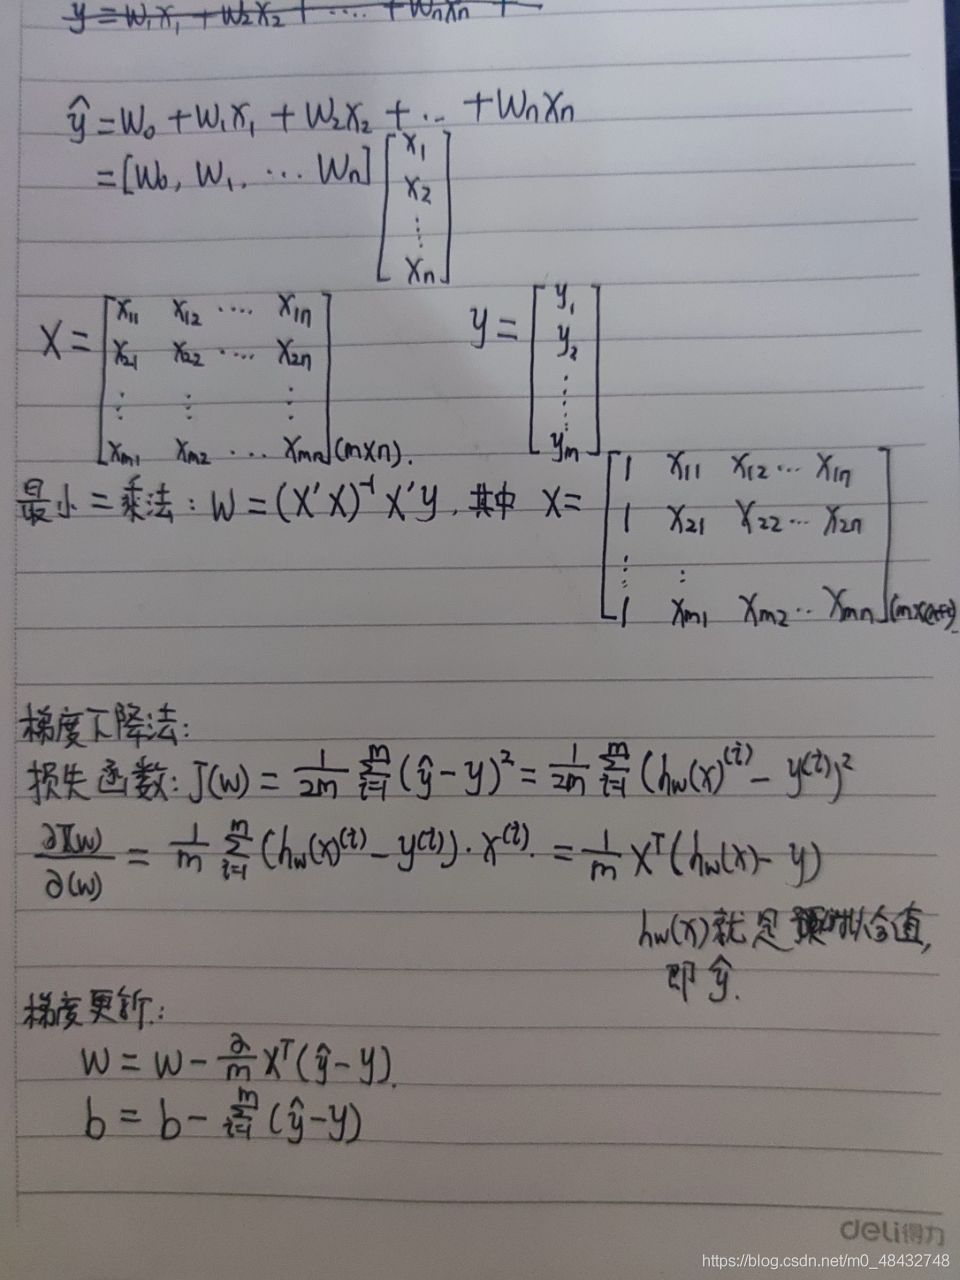 y = w₁x₁ + w₂x₂ + ···· + wₙxₙ +
ŷ = w₀ + w₁x₁ + w₂x₂ + ·· + wₙxₙ
= [w₀, w₁, ··· wₙ] [x₁ x₂ ⋮ xₙ]
X = [x₁₁ x₁₂ ···· x₁ₙ
x₂₁ x₂₂ ···· x₂ₙ
⋮ ⋮ ⋮
xₘ₁ xₘ₂ ··· xₘₙ] (m×n).
y = [y₁ y₂ ⋮ yₘ]
最小二乘法: W = (X'X)⁻¹X'y, 其中 X = [1 x₁₁ x₁₂ ··· x₁ₙ
1 x₂₁ x₂₂ ··· x₂ₙ
⋮ ⋮
1 xₘ₁ xₘ₂ ·· xₘₙ]
梯度下降法:
损失函数: J(w) = 1/2m Σᵢ₌₁ᵐ (ŷ - y)² = 1/2m Σᵢ₌₁ᵐ (h_w(x)⁽ⁱ⁾ - y⁽ⁱ⁾)²
∂J(w)/∂(w) = 1/m Σᵢ₌₁ᵐ (h_w(x)⁽ⁱ⁾ - y⁽ⁱ⁾)·x⁽ⁱ⁾. = 1/m Xᵀ(h_w(x) - y)
h_w(x)就是拟合值,
即 ŷ.
梯度更新:
w = w - ∂/m Xᵀ(ŷ - y).
b = b - Σᵢ₌₁ᵐ (ŷ - y)
deli得力
https://blog.csdn.net/m0_48432748